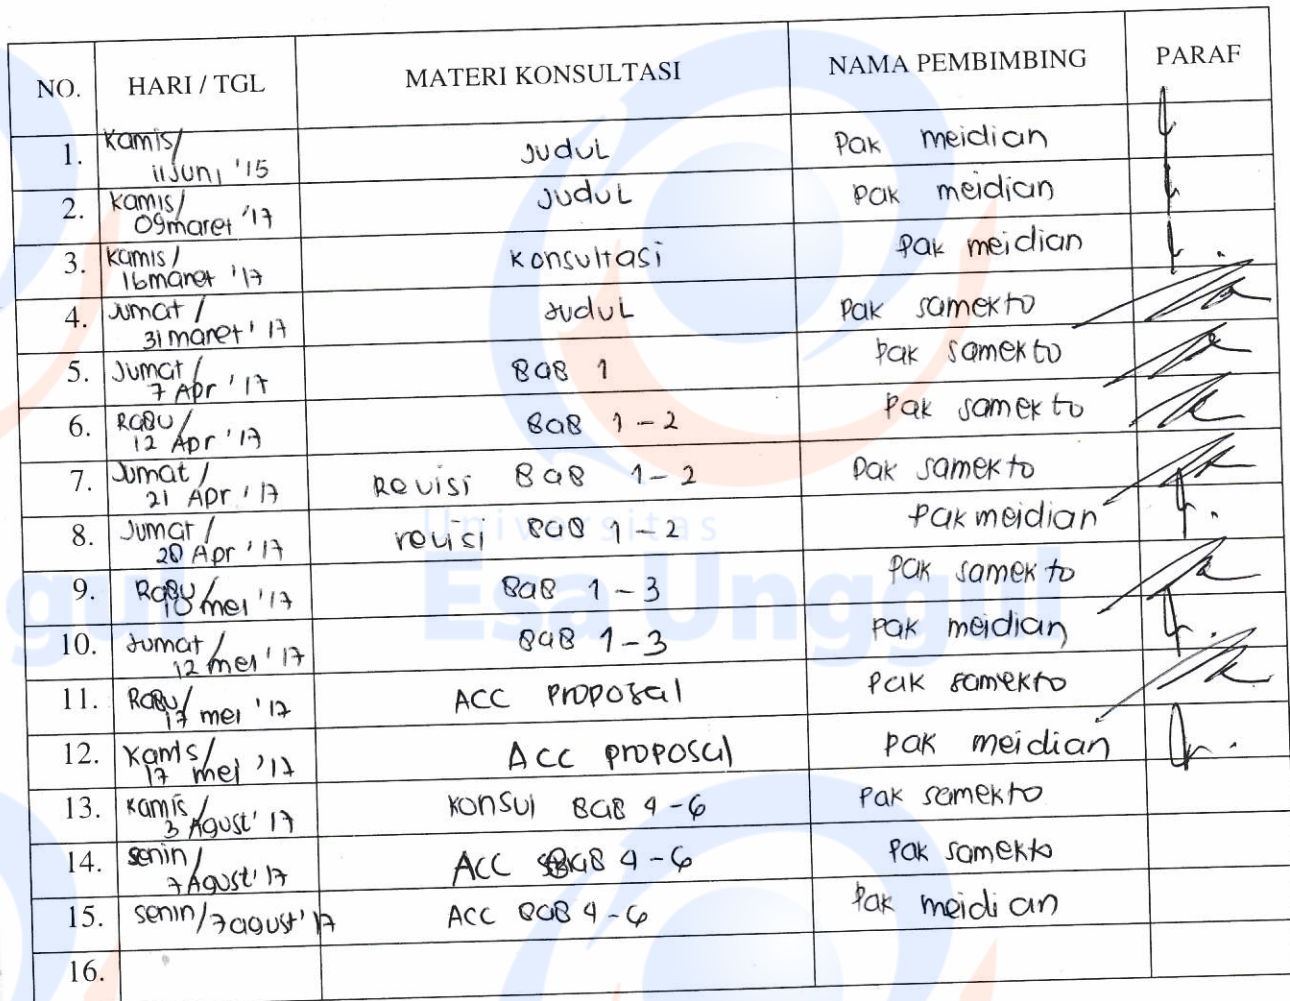 NO. HARI / TGL MATERI KONSULTASI NAMA PEMBIMBING PARAF
1. Kamis/ 11 Juni '15 Judul Pak meidian
2. Kamis/ 09 maret '17 Judul Pak meidian
3. Kamis/ 16 maret '17 Konsultasi Pak meidian
4. Jumat / 31 maret ' 17 Judul Pak samekto
5. Jumat / 7 Apr '17 BaB 1 Pak samekto
6. RaBu/ 12 Apr '17 BaB 1-2 Pak samekto
7. Jumat / 21 Apr '17 Revisi BaB 1-2 Pak samekto
8. Jumat / 28 Apr '17 revisi BaB 1-2 Pak meidian
9. RaBu/ 10 mei '17 BaB 1-3 Pak samekto
10. Jumat / 12 mei '17 BaB 1-3 Pak meidian
11. RaBu/ 17 mei '17 ACC Proposal Pak samekto
12. Kamis/ 17 mei '17 ACC Proposal Pak meidian
13. Kamis/ 3 Agust' 17 Konsul BaB 4-6 Pak samekto
14. senin/ 7 Agust' 17 ACC BaB 4-6 Pak samekto
15. senin/7 agust' 17 ACC BaB 4-6 Pak meidian
16.
Universitas
Esa Unggul
ggul